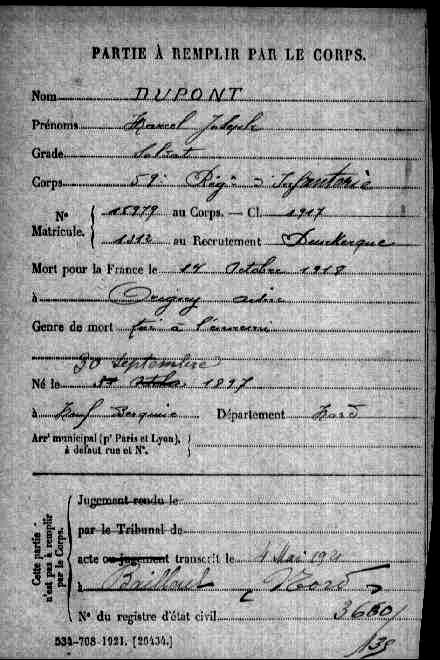 PARTIE À REMPLIR PAR LE CORPS.
Nom DUPONT
Prénoms Marcel Joseph
Grade Soldat
Corps 59e Régt d'Infanterie
No Matricule. 18979 au Corps. — Cl. 1917
1312 au Recrutement Dunkerque
Mort pour la France le 14 Octobre 1918
à Origny aisne
Genre de mort tué à l'ennemi
30 septembre
Né le 1897
à Neuf Berquin Département Nord
Arrt municipal (pr Paris et Lyon), à défaut rue et No.
Cette partie n'est pas à remplir par le Corps.
Jugement rendu le
par le Tribunal de
acte ou jugement transcrit le 4 Mai 192
à Bailleul (Nord)
No du registre d'état civil 3680/
138
534-708-1921. [26434.]